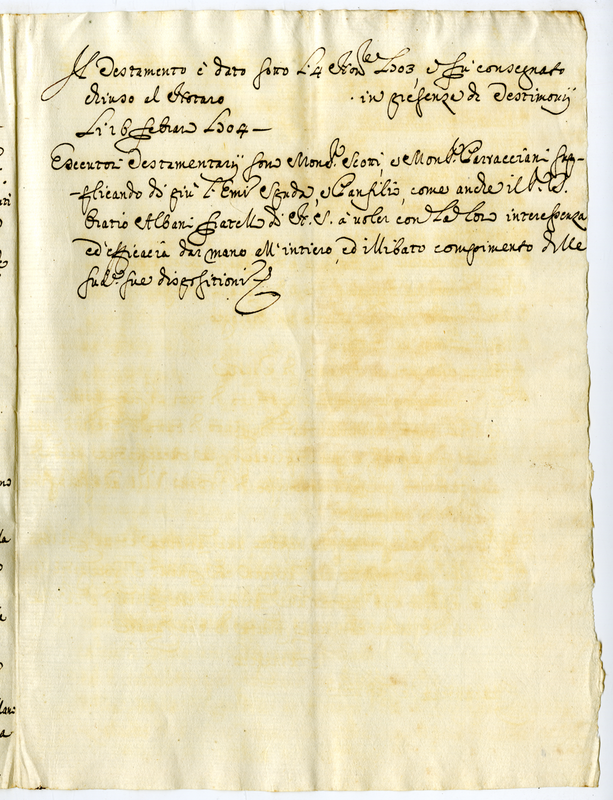 Il Testamento è dato sotto li 4 Nov.re 1703, e fù consegnato
chiuso al Notaro in presenza di Testimonij
li 16 Febraro 1704 –
Esecutori Testamentarij sono Mons.r Scotti, e Mons.r Carraccioni sup-
-plicando di più l'Emi Spada, e Panfilio, come anche il S.r D.
Oratio Albani fratello di N. S. à voler con la loro interessenza
ed efficacia dar mano all'intiero, ed illibato compimento delle
sud.e sue dispositioni